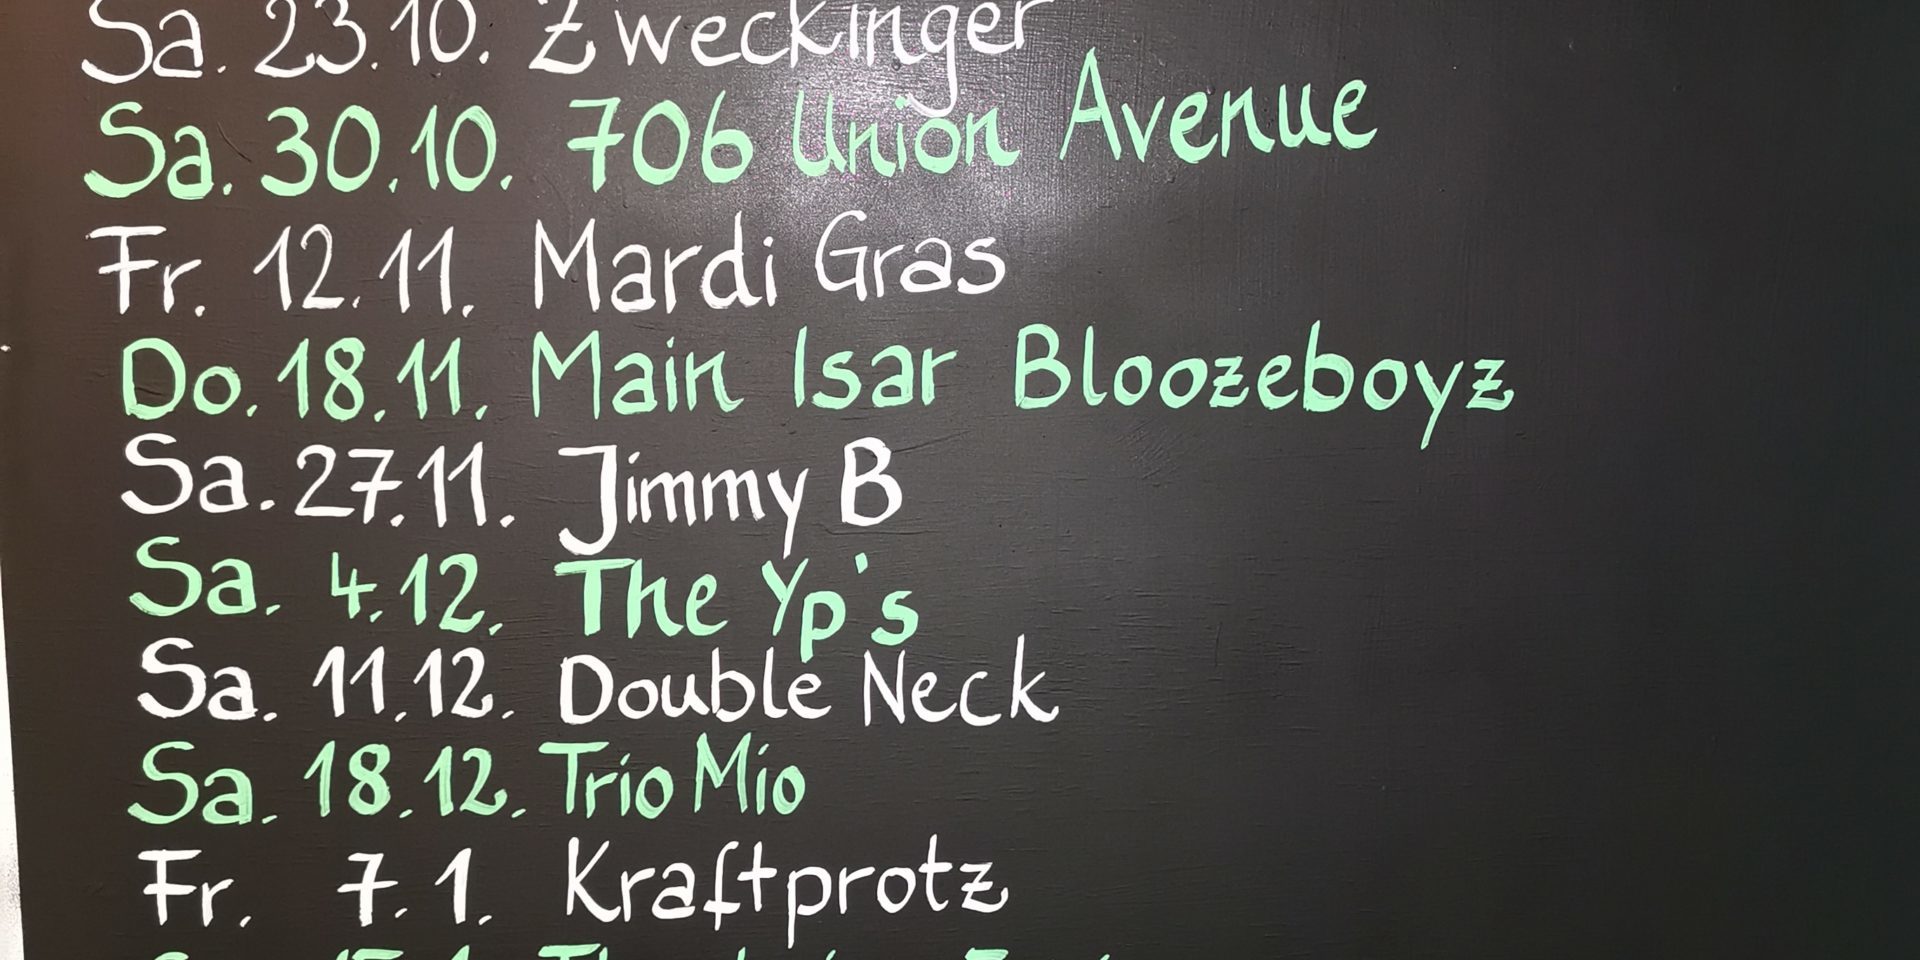 Sa. 23.10. Zweckinger
Sa. 30.10. 706 Union Avenue
Fr. 12.11. Mardi Gras
Do. 18.11. Main Isar Bloozeboyz
Sa. 27.11. Jimmy B
Sa. 4.12. The Yp's
Sa. 11.12. Double Neck
Sa. 18.12. Trio Mio
Fr. 7.1. Kraftprotz